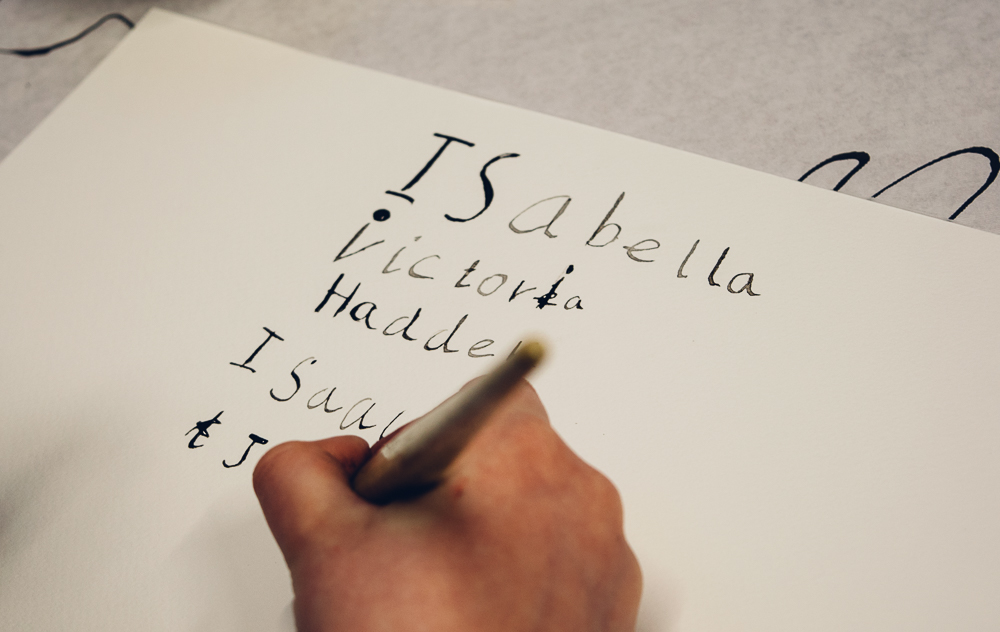 ISabella
Victoria
Hadde
ISaac
t J